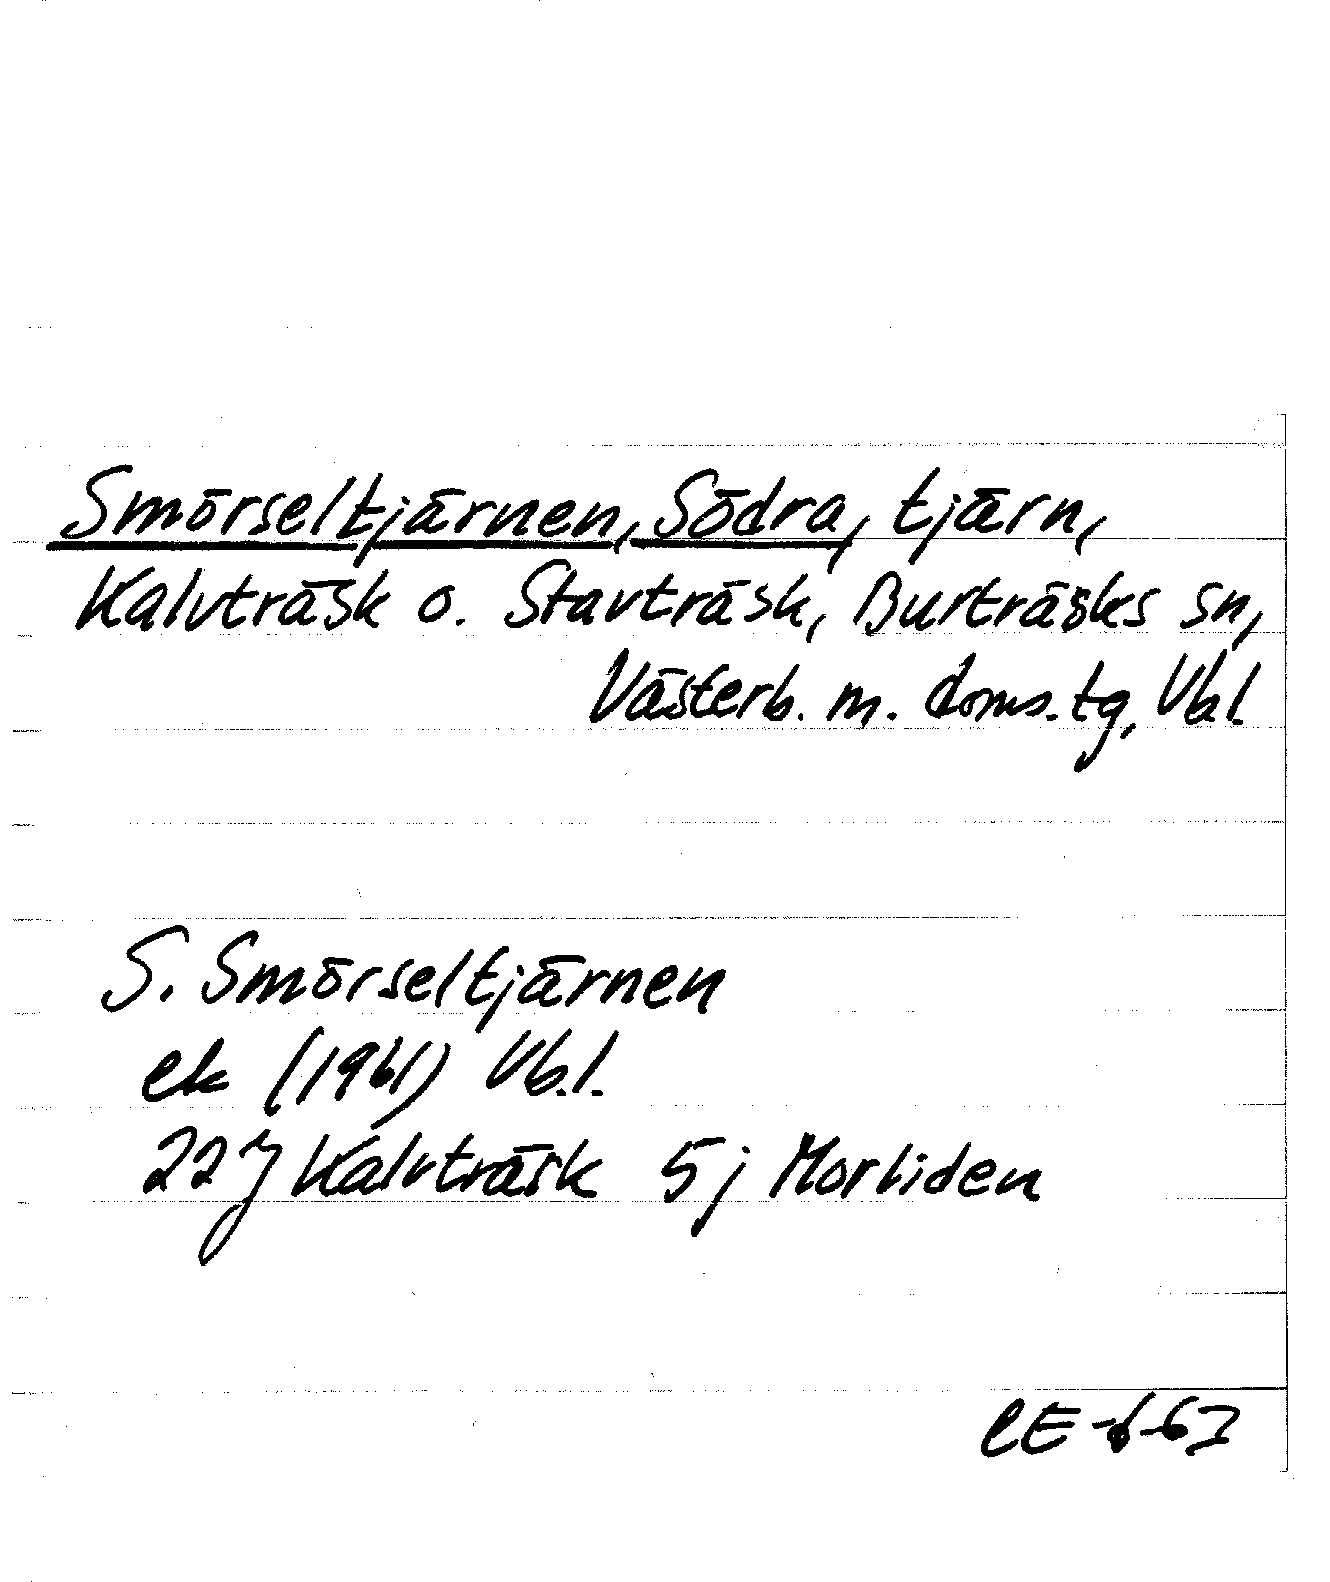 Smörseltjärnen, Södra, tjärn,
Kalvträsk o. Stavträsk, Burträsks sn,
Västerb. m. doms.tg, Vbl
S. Smörseltjärnen
ek (1961) Vb.l.
22 J Kalvträsk 5 j Morliden
CE-6-63